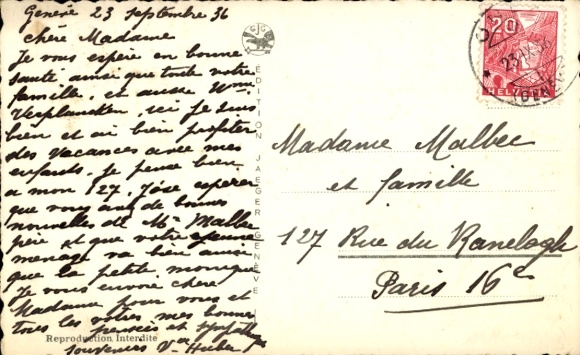 Genève 23 septembre 36
Chère Madame
Je vous espère en bonne
santé ainsi que toute votre
famille, et aussi Mme
Verplancken, ici je suis
bien et ai bien profiter
des vacances avec mes
enfants, je pense bien
a mon 127. J'ose esperer
que vous avez de bonnes
nouvelles de Mr Malbec
père et que votre jeune
menage va bien ainsi
que la petite monique
Je vous envoie chère
Madame pour vous et
tous les votres mes bonnes
pensées et
souvenirs Huber
Reproduction Interdite
EDITION JAEGER GENÈVE
20
HELVETIA
23.IX.36
Madame Malbec
et famille
127 Rue du Ranelagh
Paris 16e